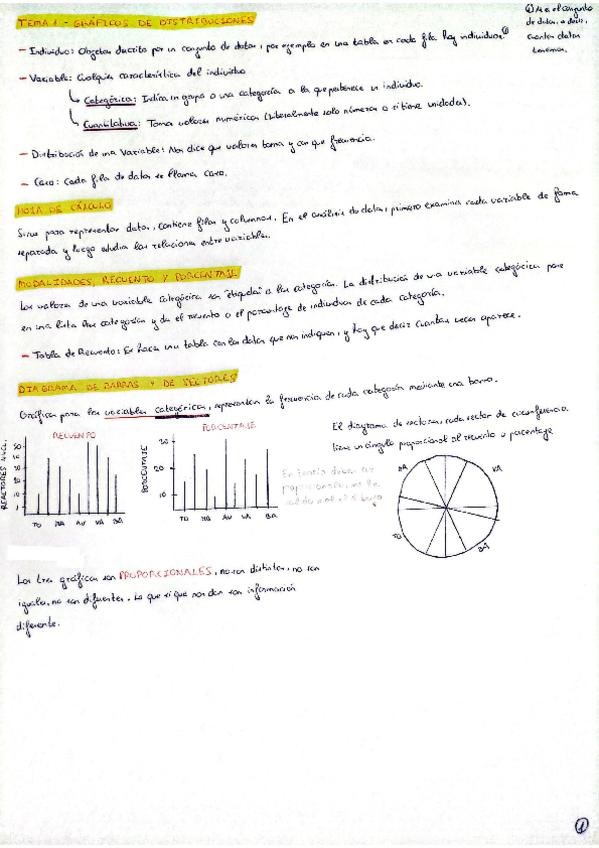 TEMA 1 - GRÁFICOS DE DISTRIBUCIONES
① N es el conjunto
de datos, es decir,
cuantos datos
tenemos.
- Individuo: Objetos descrito por un conjunto de datos, por ejemplo en una tabla en cada fila hay individuos①
- Variable: Cualquier característica del individuo
Categórica: Indica un grupo o una categoría a la que pertenece un individuo.
Cuantitativa: Toma valores numéricos (Literalmente solo números o si tiene unidades).
- Distribución de una Variable: Nos dice que valores toma y con que frecuencia.
- Caso: Cada fila de datos se llama caso.
HOJA DE CÁLCULO
Sirve para representar datos, contiene filas y columnas. En el análisis de datos, primero examina cada variable de forma
separada y luego estudia las relaciones entre variables.
MODALIDADES, RECUENTO Y PORCENTAJE
Los valores de una variable categórica son "etiquetas" a las categorías. La distribución de una variable categórica pone
en una lista las categorías y da el recuento o el porcentaje de individuos de cada categoría.
- Tabla de Recuento: Se hace una tabla con los datos que nos indiquen, y hay que decir cuantas veces aparece.
DIAGRAMA DE BARRAS Y DE SECTORES
Gráficas para las variables categóricas, representan la frecuencia de cada categoría mediante una barra.
El diagrama de sectores, cada sector de circunferencia
tiene un ángulo proporcional al recuento o porcentaje
RECUENTO
REACTORES NUCL.
TO NA AV VA BA
PORCENTAJE
PORCENTAJE
30
20
10
TO NA AV VA BA
En teoría deben ser
proporcionales
BA
VA
TO
BA
Los tres gráficos son PROPORCIONALES, no son distintos, no son
iguales, no son diferentes. Lo que sí que nos dan son información
diferente.
1